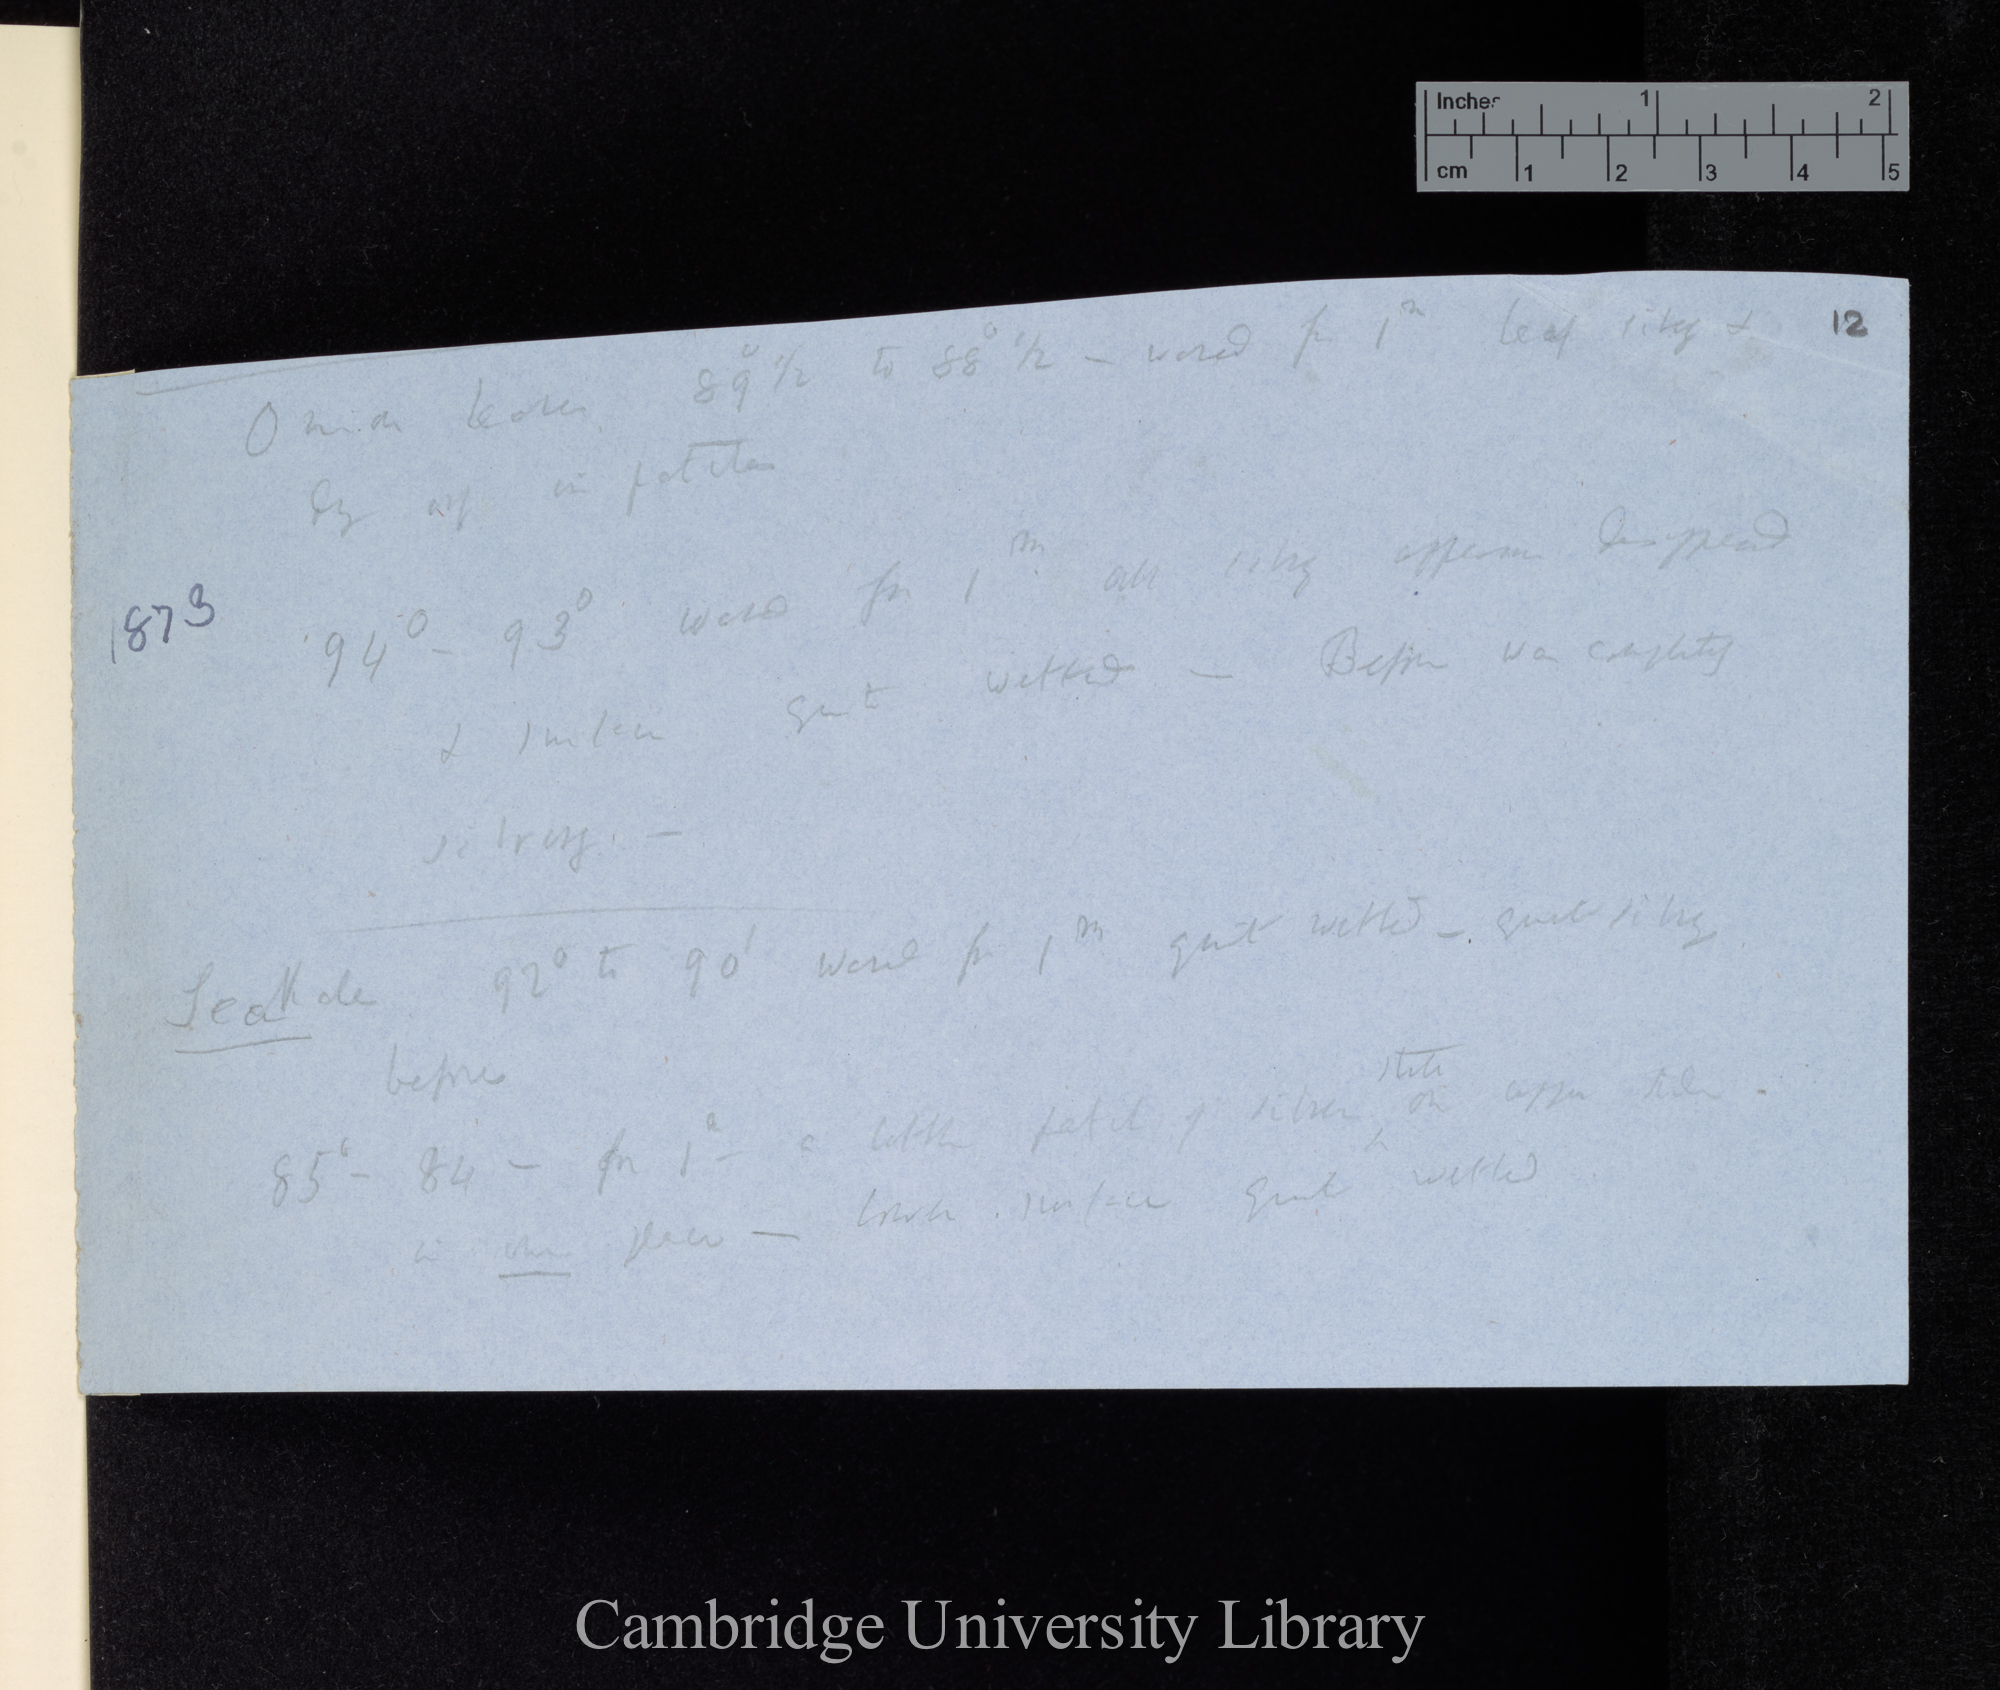 Inches 1 2
cm 1 2 3 4 5
12
leaves 89°½ to 88°½ — waved for 1ᵐ leaf silvery &
dry in patches
1873
94° – 93° waved for 1ᵐ all silvery disappeared
& surface quite wetted — Before was completely
silvery. —
92° to 90° waved for 1ᵐ quite wetted — quite silvery
before
state
85° – 84 — for 1ᵐ – a little patch of silver on upper side –
in one place — lower surface quite wetted
Cambridge University Library